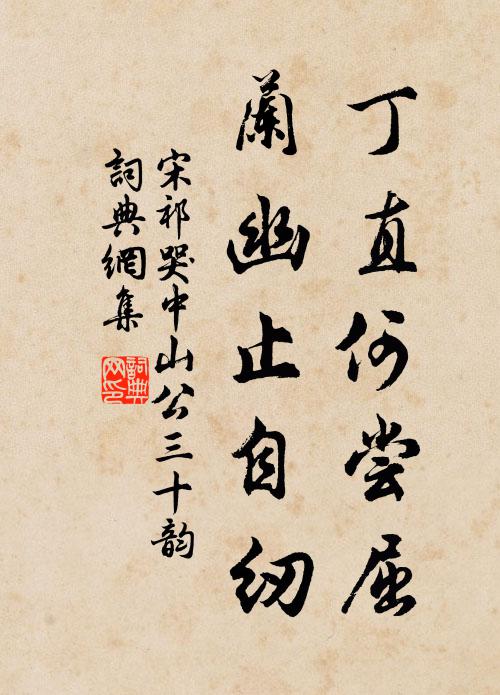 丁直何尝屈
蘭幽止自纫
宋祁哭中山公三十韵
詞典網集
詞典网印